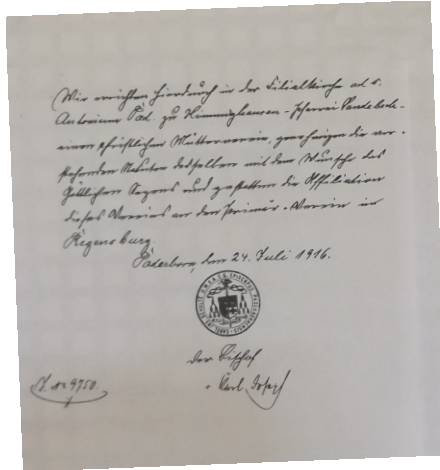 Wir errichten hierdurch in der Filialkirche ad s.
Antonium Pad. zu Himmighausen - Pfarrei Sandebeck -
einen christlichen Mütterverein, genehmigen die vor-
stehenden Statuten desselben mit dem Wunsche des
Göttlichen Segens und gestatten die Affiliation
dieses Vereins an den Primär-Verein in
Regensburg
Paderborn, den 24. Juli 1916.
Der Bischof
+ Karl Joseph
J. No 9750.